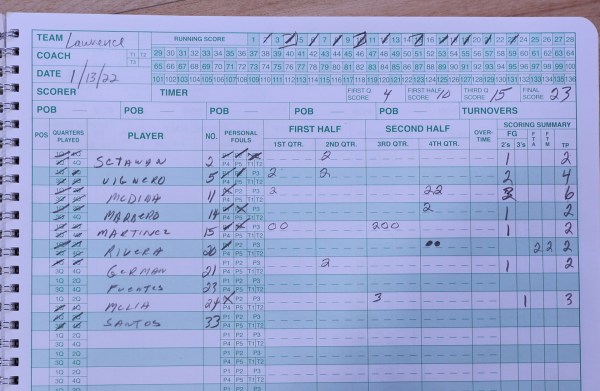 TEAM Lawrence RUNNING SCORE 1 2 3 4 5 6 7 8 9 10 11 12 13 14 15 16 17 18 19 20 21 22 23 24 25 26 27 28
COACH T1 T2 T3 29 30 31 32 33 34 35 36 37 38 39 40 41 42 43 44 45 46 47 48 49 50 51 52 53 54 55 56 57 58 59 60 61 62 63 64
DATE 1/13/22 65 66 67 68 69 70 71 72 73 74 75 76 77 78 79 80 81 82 83 84 85 86 87 88 89 90 91 92 93 94 95 96 97 98 99 100
101 102 103 104 105 106 107 108 109 110 111 112 113 114 115 116 117 118 119 120 121 122 123 124 125 126 127 128 129 130 131 132 133 134 135 136
SCORER TIMER FIRST Q SCORE 4 FIRST HALF SCORE 10 THIRD Q SCORE 15 FINAL SCORE 23
POB POB POB POB POB TURNOVERS
POS QUARTERS PLAYED PLAYER NO. PERSONAL FOULS FIRST HALF SECOND HALF OVER-TIME SCORING SUMMARY
1ST QTR. 2ND QTR. 3RD QTR. 4TH QTR. FG 2's 3's FTA FTM TP
2 P1 P2 P3 P4 P5 T1 T2 2 1 2
5 P1 P2 P3 P4 P5 T1 T2 2 2 2 4
11 P1 P2 P3 P4 P5 T1 T2 2 2 2 3 6
14 P1 P2 P3 P4 P5 T1 T2 2 1 2
MARTINEZ 15 P1 P2 P3 P4 P5 T1 T2 00 200 1 2
RIVERA 20 P1 P2 P3 P4 P5 T1 T2 2 2 2
GERMAN 21 P1 P2 P3 P4 P5 T1 T2 2 1 2
FUENTES 23 P1 P2 P3 P4 P5 T1 T2
24 P1 P2 P3 P4 P5 T1 T2 3 1 3
SANTOS 33 P1 P2 P3 P4 P5 T1 T2
1Q 2Q 3Q 4Q P1 P2 P3 P4 P5 T1 T2
1Q 2Q 3Q 4Q P1 P2 P3 P4 P5 T1 T2
1Q 2Q 3Q 4Q P1 P2 P3 P4 P5 T1 T2